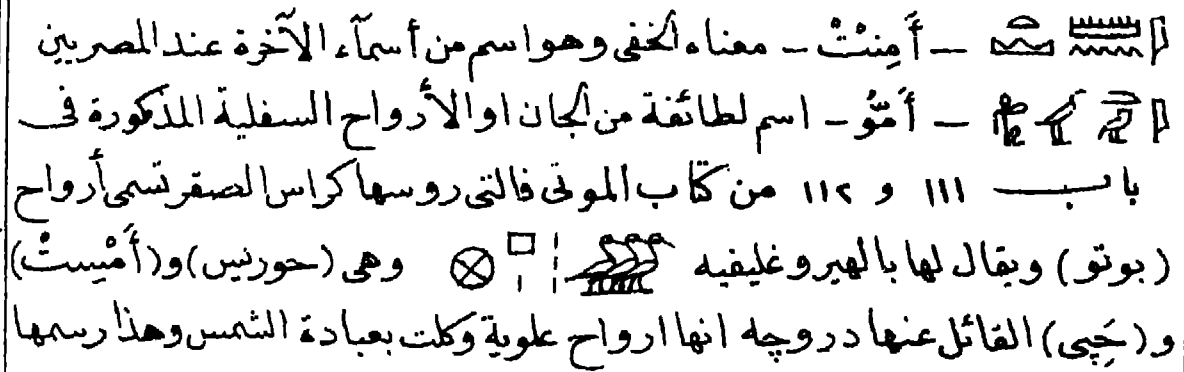 — أَمِنتْ — معناه الخفى وهو اسم من أسمآء الآخرة عند المصريين
— أَمُّو — اسم لطائفة من الجان او الأرواح السفلية المذكورة فى
باب ١١١ و ١١٢ من كتاب الموتى فالتى روسها كراس الصقر تسمى أرواح
(بوتو) ويقال لها بالهيروغليفيه وهى (حوريس) و(أَمْيِستْ)
و(حَپِى) القائل عنها دروجه انها ارواح علوية وكلت بعبادة الشمس وهذا رسمها